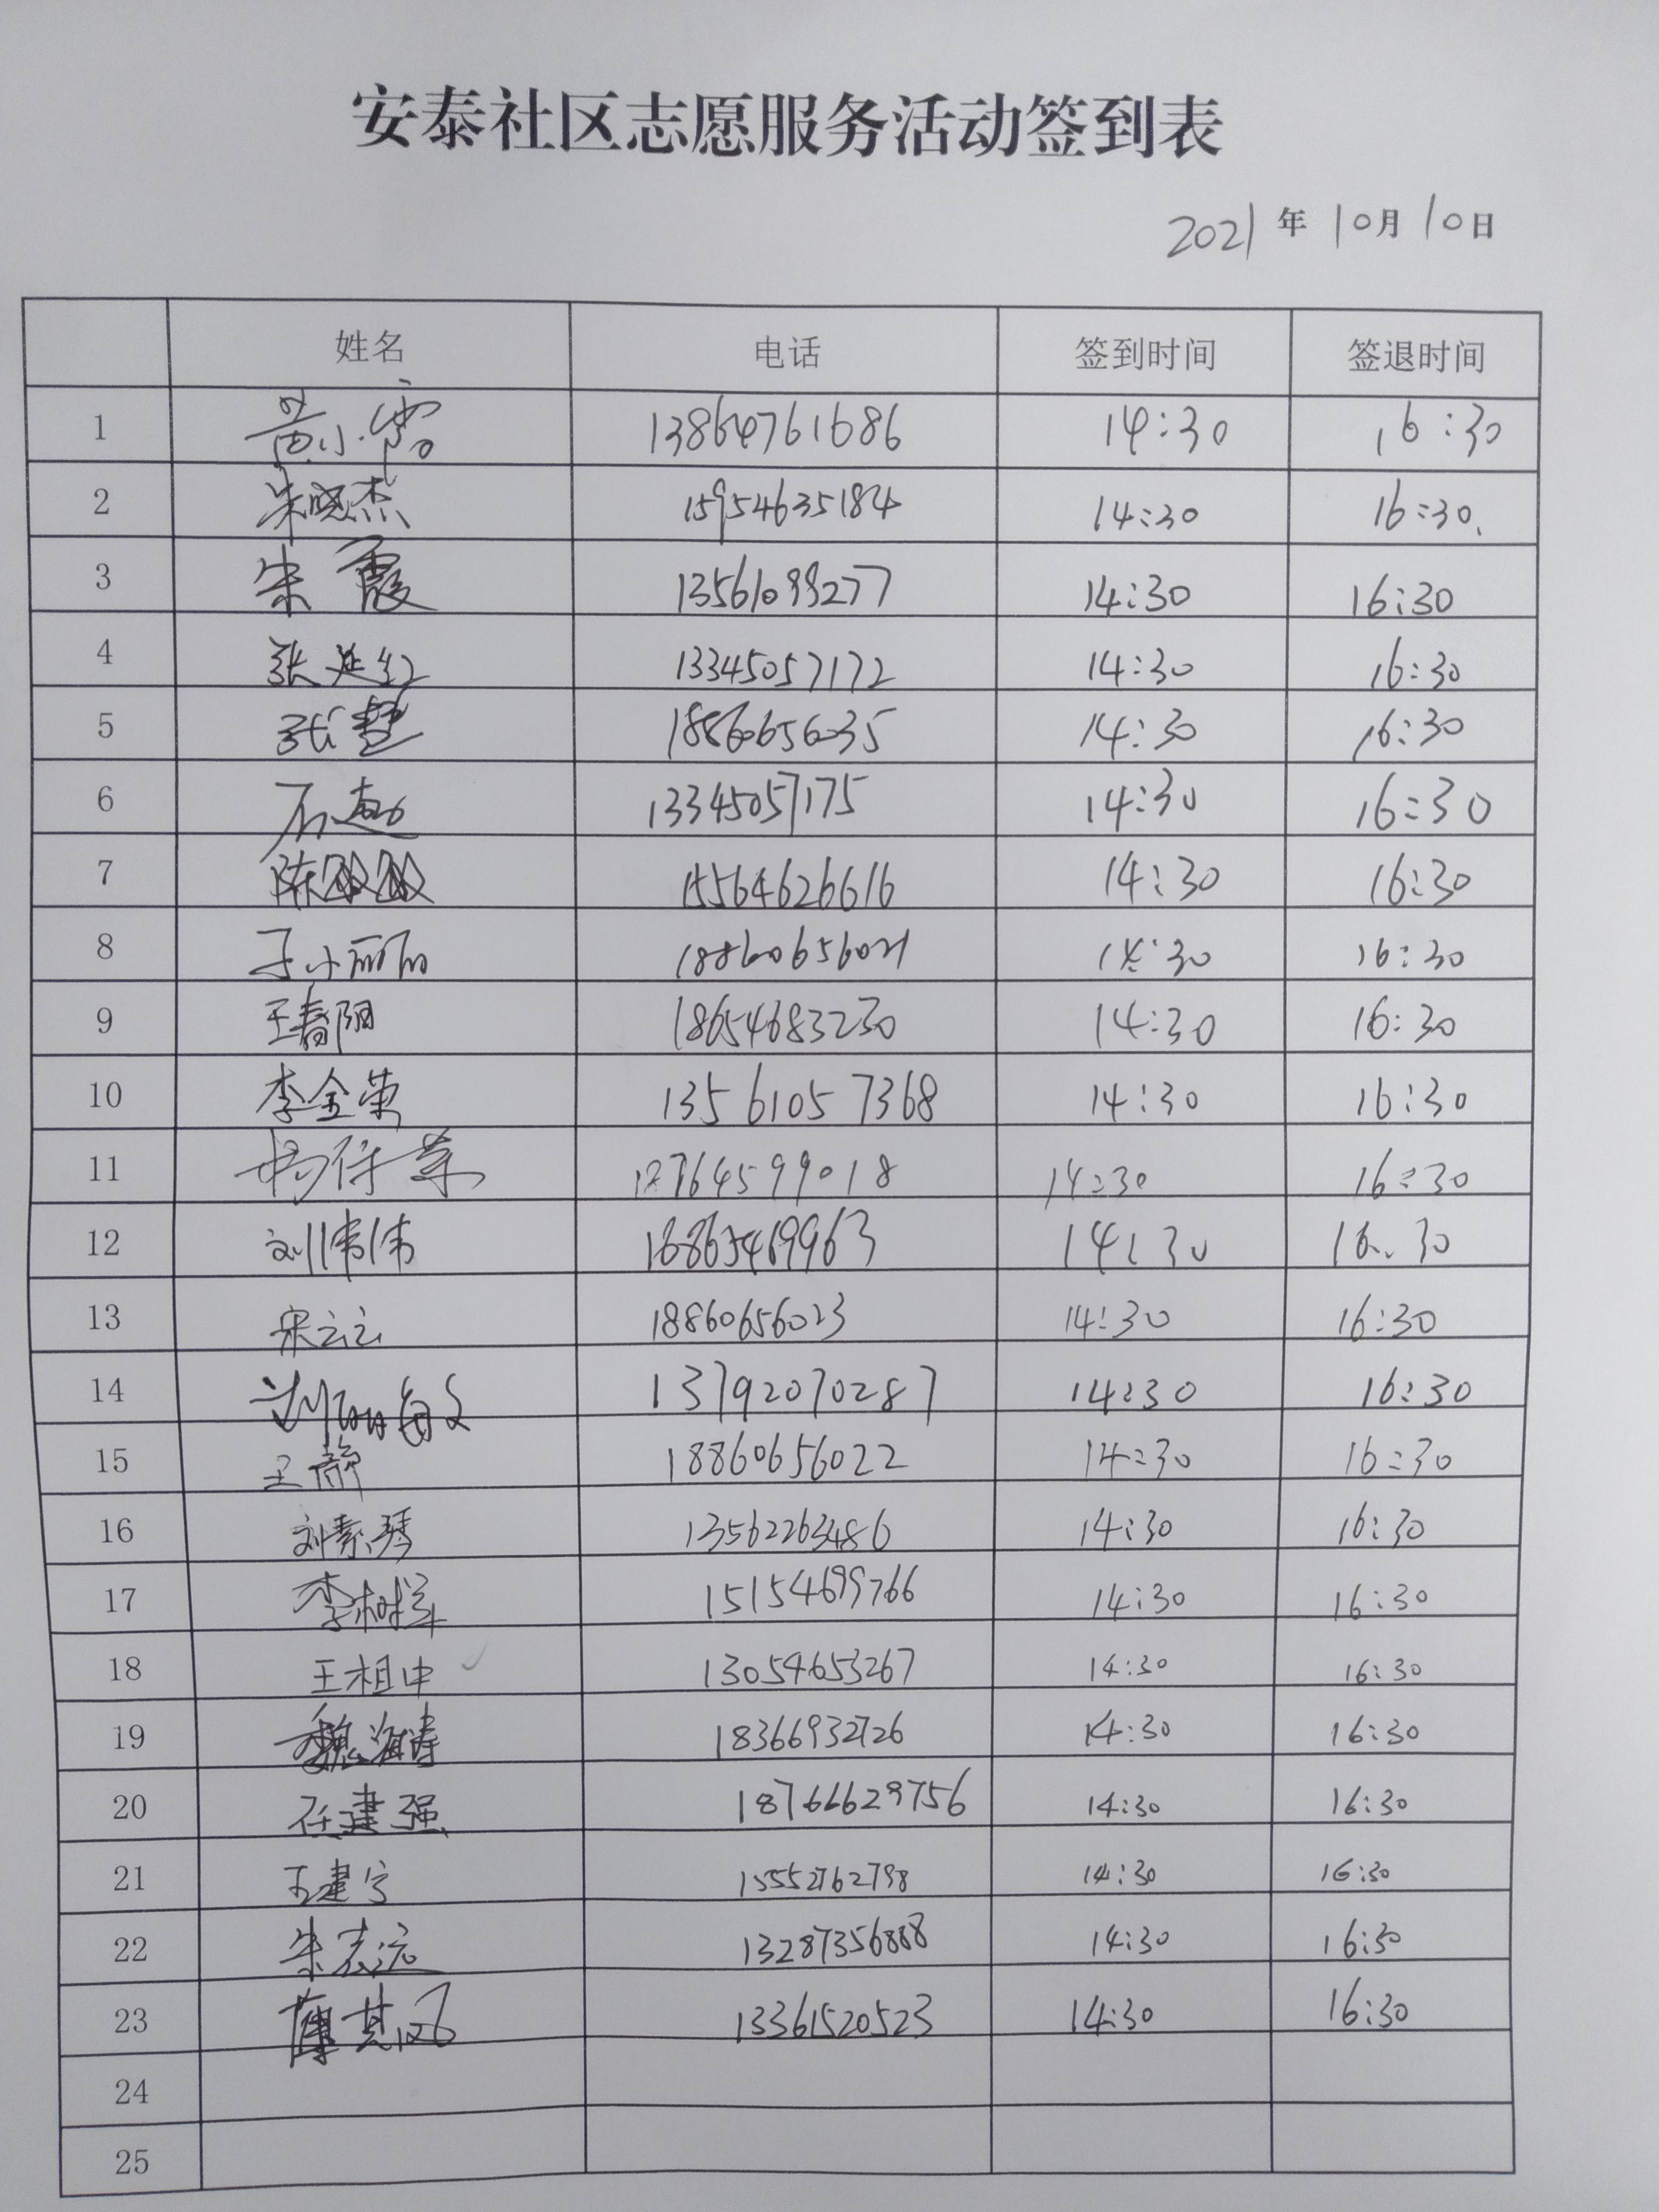 安泰社区志愿服务活动签到表
2021年10月10日
姓名 电话 签到时间 签退时间
1 黄小霞 13864761686 14:30 16:30
2 朱晓杰 15954635184 14:30 16:30
3 朱霞 13561099277 14:30 16:30
4 张延红 13345057172 14:30 16:30
5 张慧 18860656035 14:30 16:30
6 石超 13345057175 14:30 16:30
7 陈双双 15564626616 14:30 16:30
8 于小丽 18860656021 14:30 16:30
9 王春阳 18654683230 14:30 16:30
10 李金荣 13561057368 14:30 16:30
11 14:30 16:30
12 刘伟伟 14:30 16:30
13 宋云云 18860656023 14:30 16:30
14 13792070287 14:30 16:30
15 王静 18860656022 14:30 16:30
16 刘素琴 13562263486 14:30 16:30
17 李树军 15154699766 14:30 16:30
18 王相中 13054653267 14:30 16:30
19 魏海涛 18366932726 14:30 16:30
20 任建强 18766629756 14:30 16:30
21 王建宁 15552762798 14:30 16:30
22 朱志远 13287356888 14:30 16:30
23 薄其风 13361520523 14:30 16:30
24
25